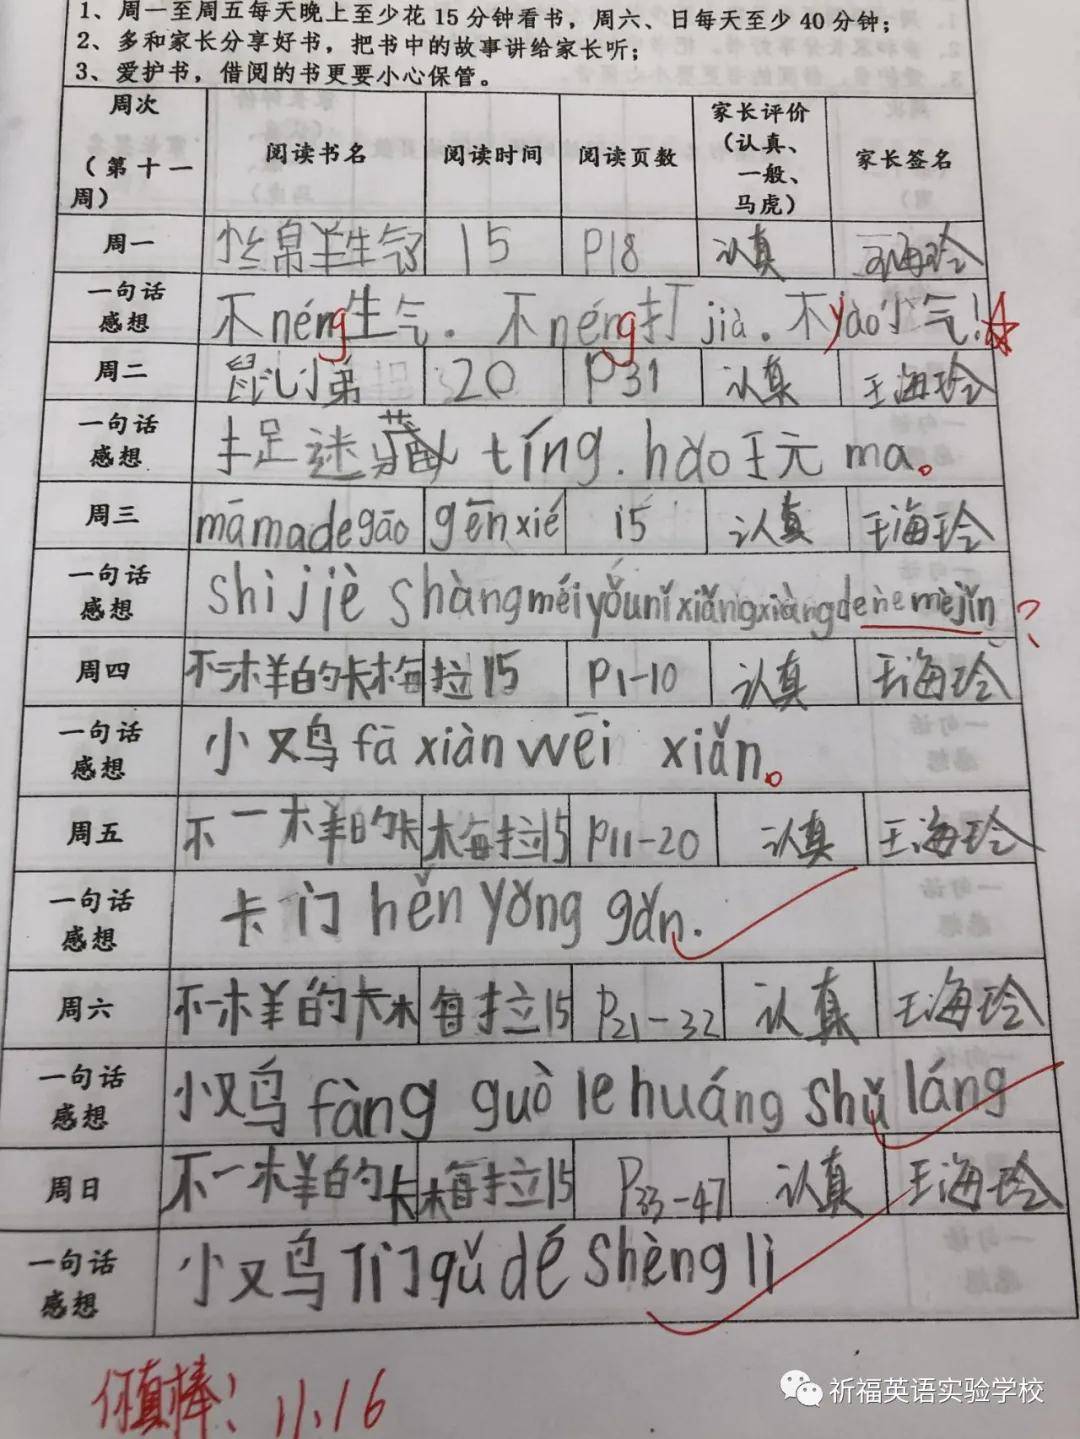 1、周一至周五每天晚上至少花15分钟看书，周六、日每天至少40分钟；
2、多和家长分享好书，把书中的故事讲给家长听；
3、爱护书，借阅的书更要小心保管。
周次（第十一周） 阅读书名 阅读时间 阅读页数 家长评价（认真、一般、马虎） 家长签名
周一 羊生气了 15 P18 认真 王海玲
一句话感想 不néng生气. 不néng打jià. 不yào小气!
周二 鼠小弟 20 P31 认真 王海玲
一句话感想 捉迷藏 tíng. hǎo玩 ma。
周三 māmadegāo gēnxié 15 认真 王海玲
一句话感想 shi jiè shàngméiyǒunǐxiǎngxiàngde nemèjǐn ?
周四 不一样的卡梅拉 15 P1-10 认真 王海玲
一句话感想 小鸡 fā xiàn wēi xiǎn。
周五 不一样的卡梅拉 15 P11-20 认真 王海玲
一句话感想 卡门 hěn yǒng gǎn.
周六 不一样的卡梅拉 15 P21-32 认真 王海玲
一句话感想 小鸡 fàng guò le huáng shǔ láng
周日 不一样的卡梅拉 15 P33-47 认真 王海玲
一句话感想 小鸡们qǔ dé shèng lì
你真棒! 11.16
祈福英语实验学校